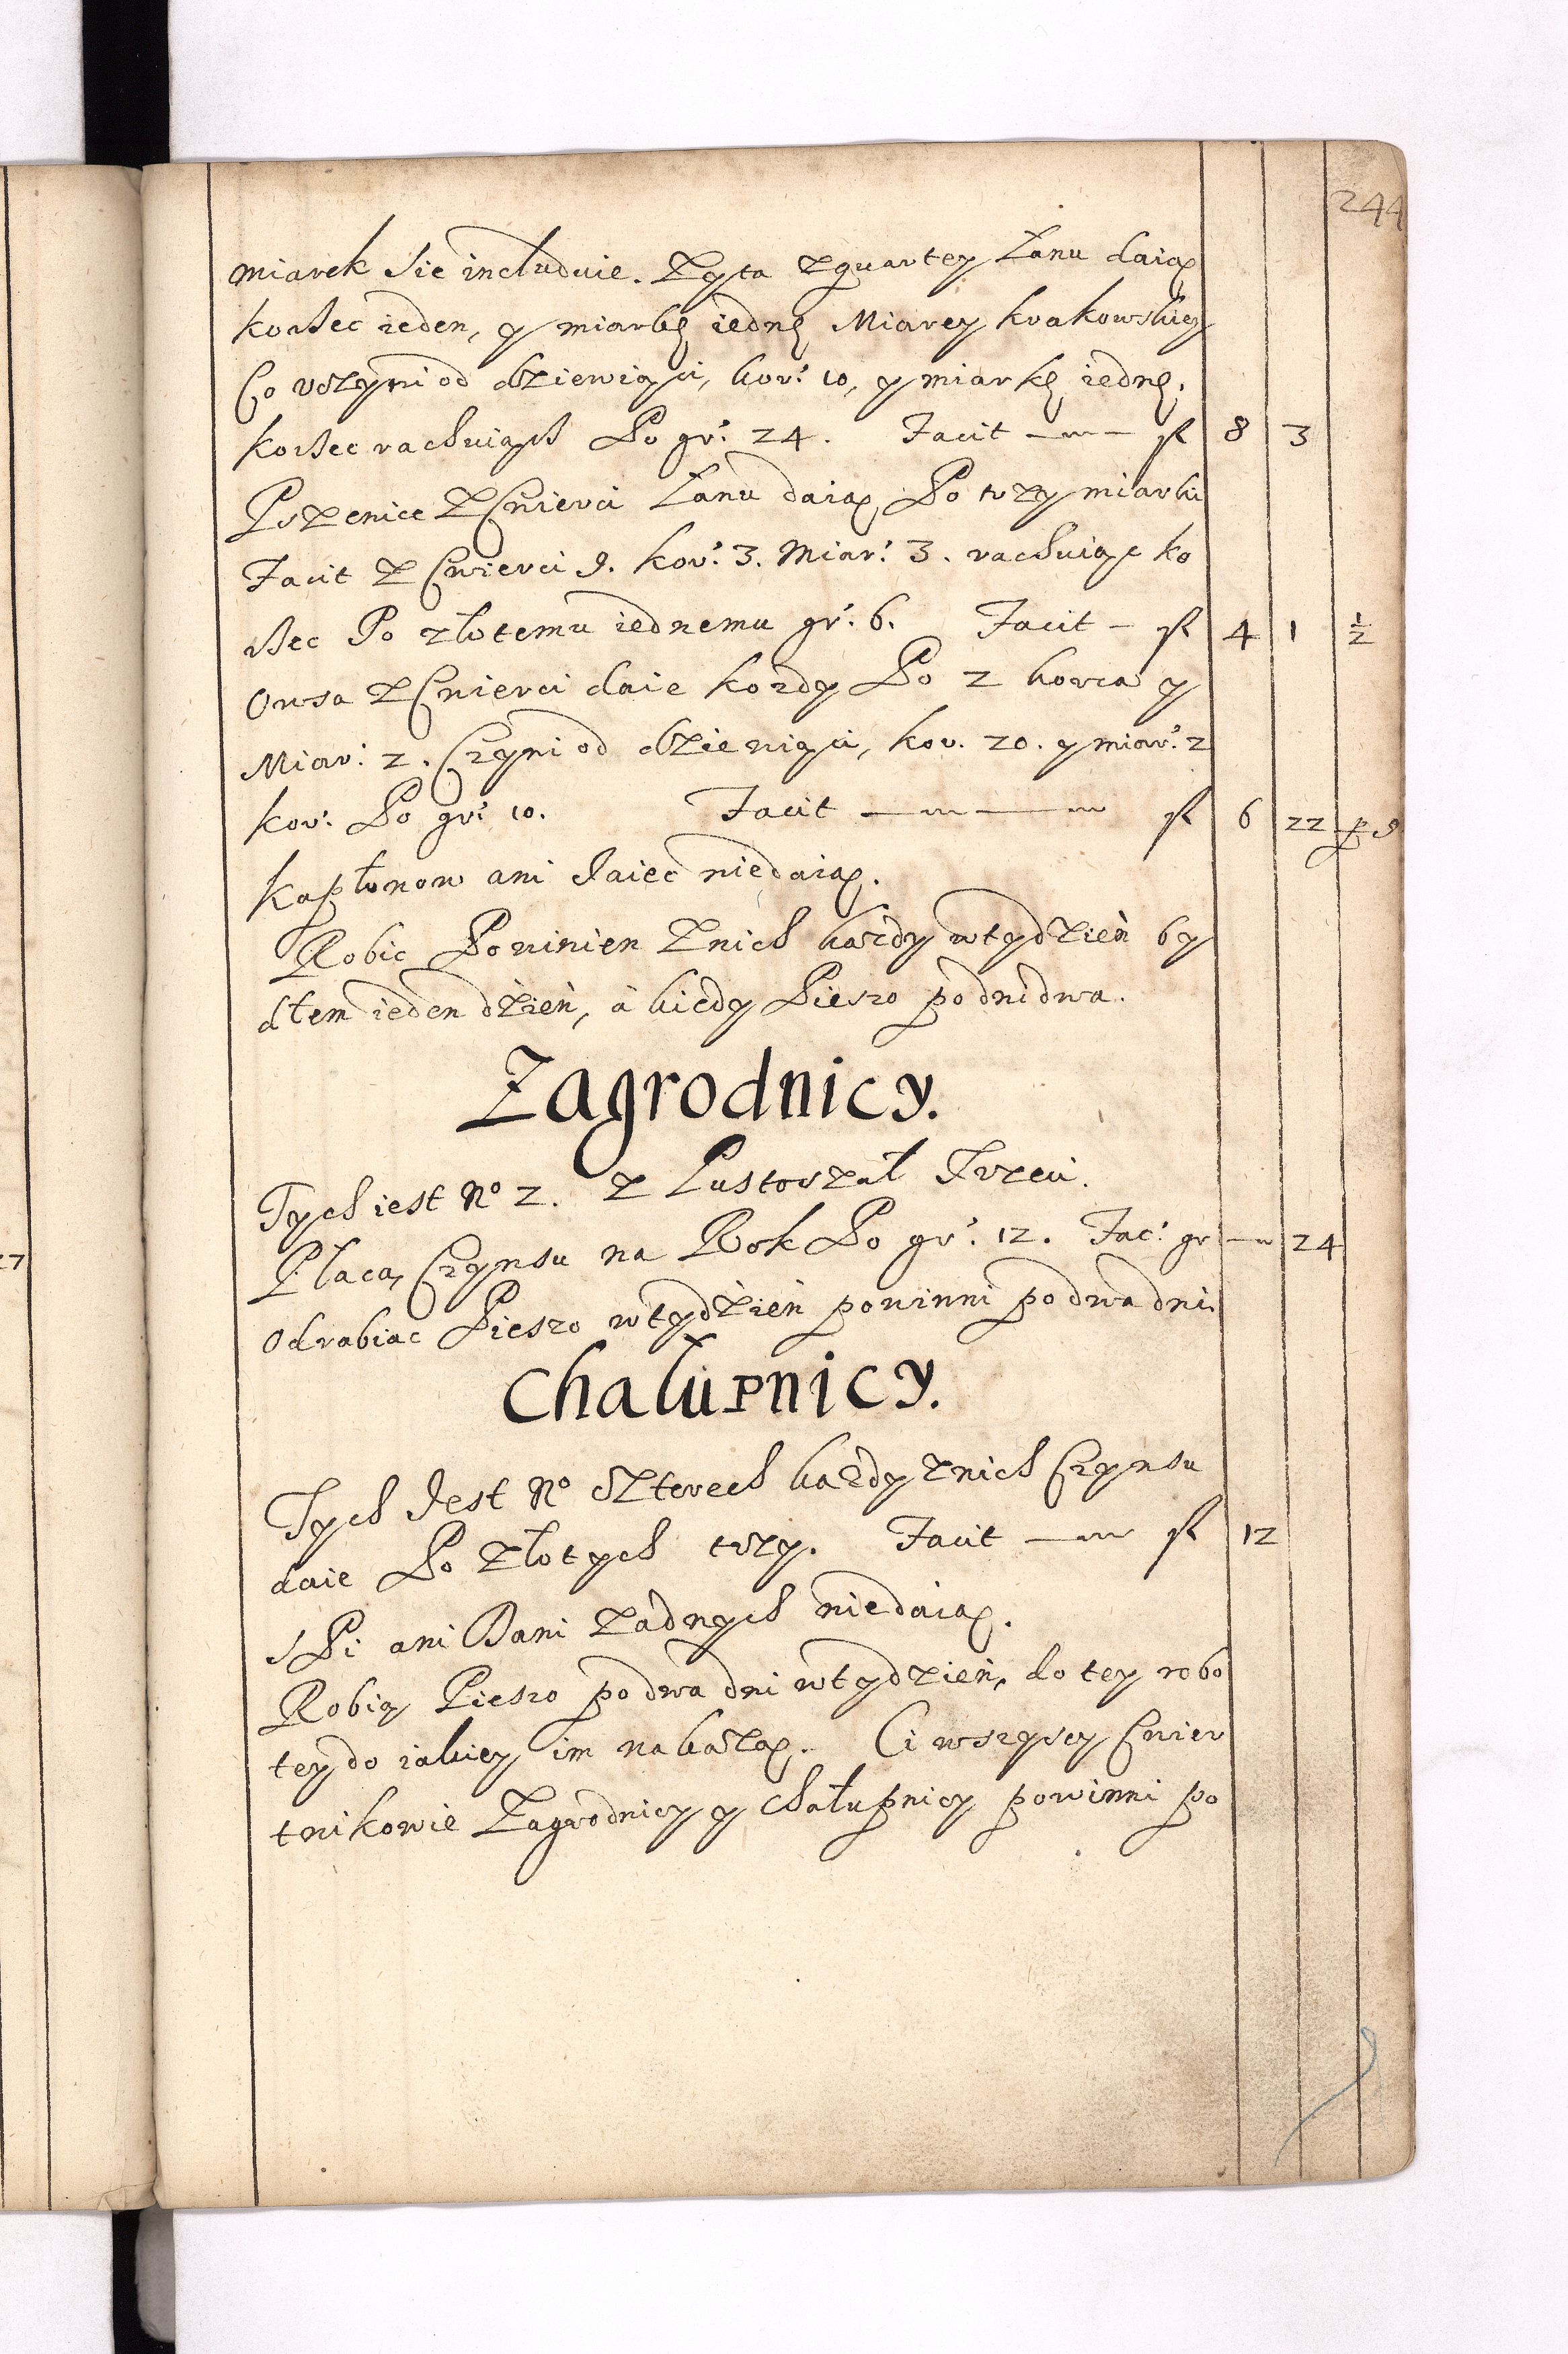 244
miarek sie includuie. Zyta z quartey Łanu daią
korzec ieden, y miarkę iednę Miarey krakowskiey
Co vczyni od dziewiąci, kor: 10, y miarkę iednę.
korzec rachuiąc Po gr: 24. Facit fl 8 3
Pszenice z Cwierci Łanu daią Po trzy miarki
Facit z Cwierci 9. kor: 3. Miar: 3. rachuiąc ko
rzec Po złotemu iednemu gr: 6. Facit fl 4 1 ½
Owsa z Cwierci daie kozdy Po 2 korca y
Miar: 2. Czyni od dziewiąci, kor. 20. y miar: 2
kor: Po gr: 10. Facit fl 6 22 p 9
kapłonow ani Jaiec niedaią.
Robic Powinien znich kazdy w tydzień by
dłem ieden dzień, à kiedy Pieszo po dni dwa.
Zagrodnicy.
Tych iest No 2. z Pustoszał Trzeci.
27
Płacą Czynsu na Rok Po gr: 12. Fac: gr 24
Odrabiac Pieszo w tydzień powinni po dwa dni
Chałupnicy.
Tych Jest No Czterech kazdy znich Czynsu
daie Po złotych trzy. Facit fl 12
sPi ani Dani zadnych niedaią.
Robią Pieszo po dwa dni w tydzień, do tey robo
tey do iakiey im nakazą. Ci wszyscy Cwier
tnikowie Zagrodnicy y chałupnicy powinni po